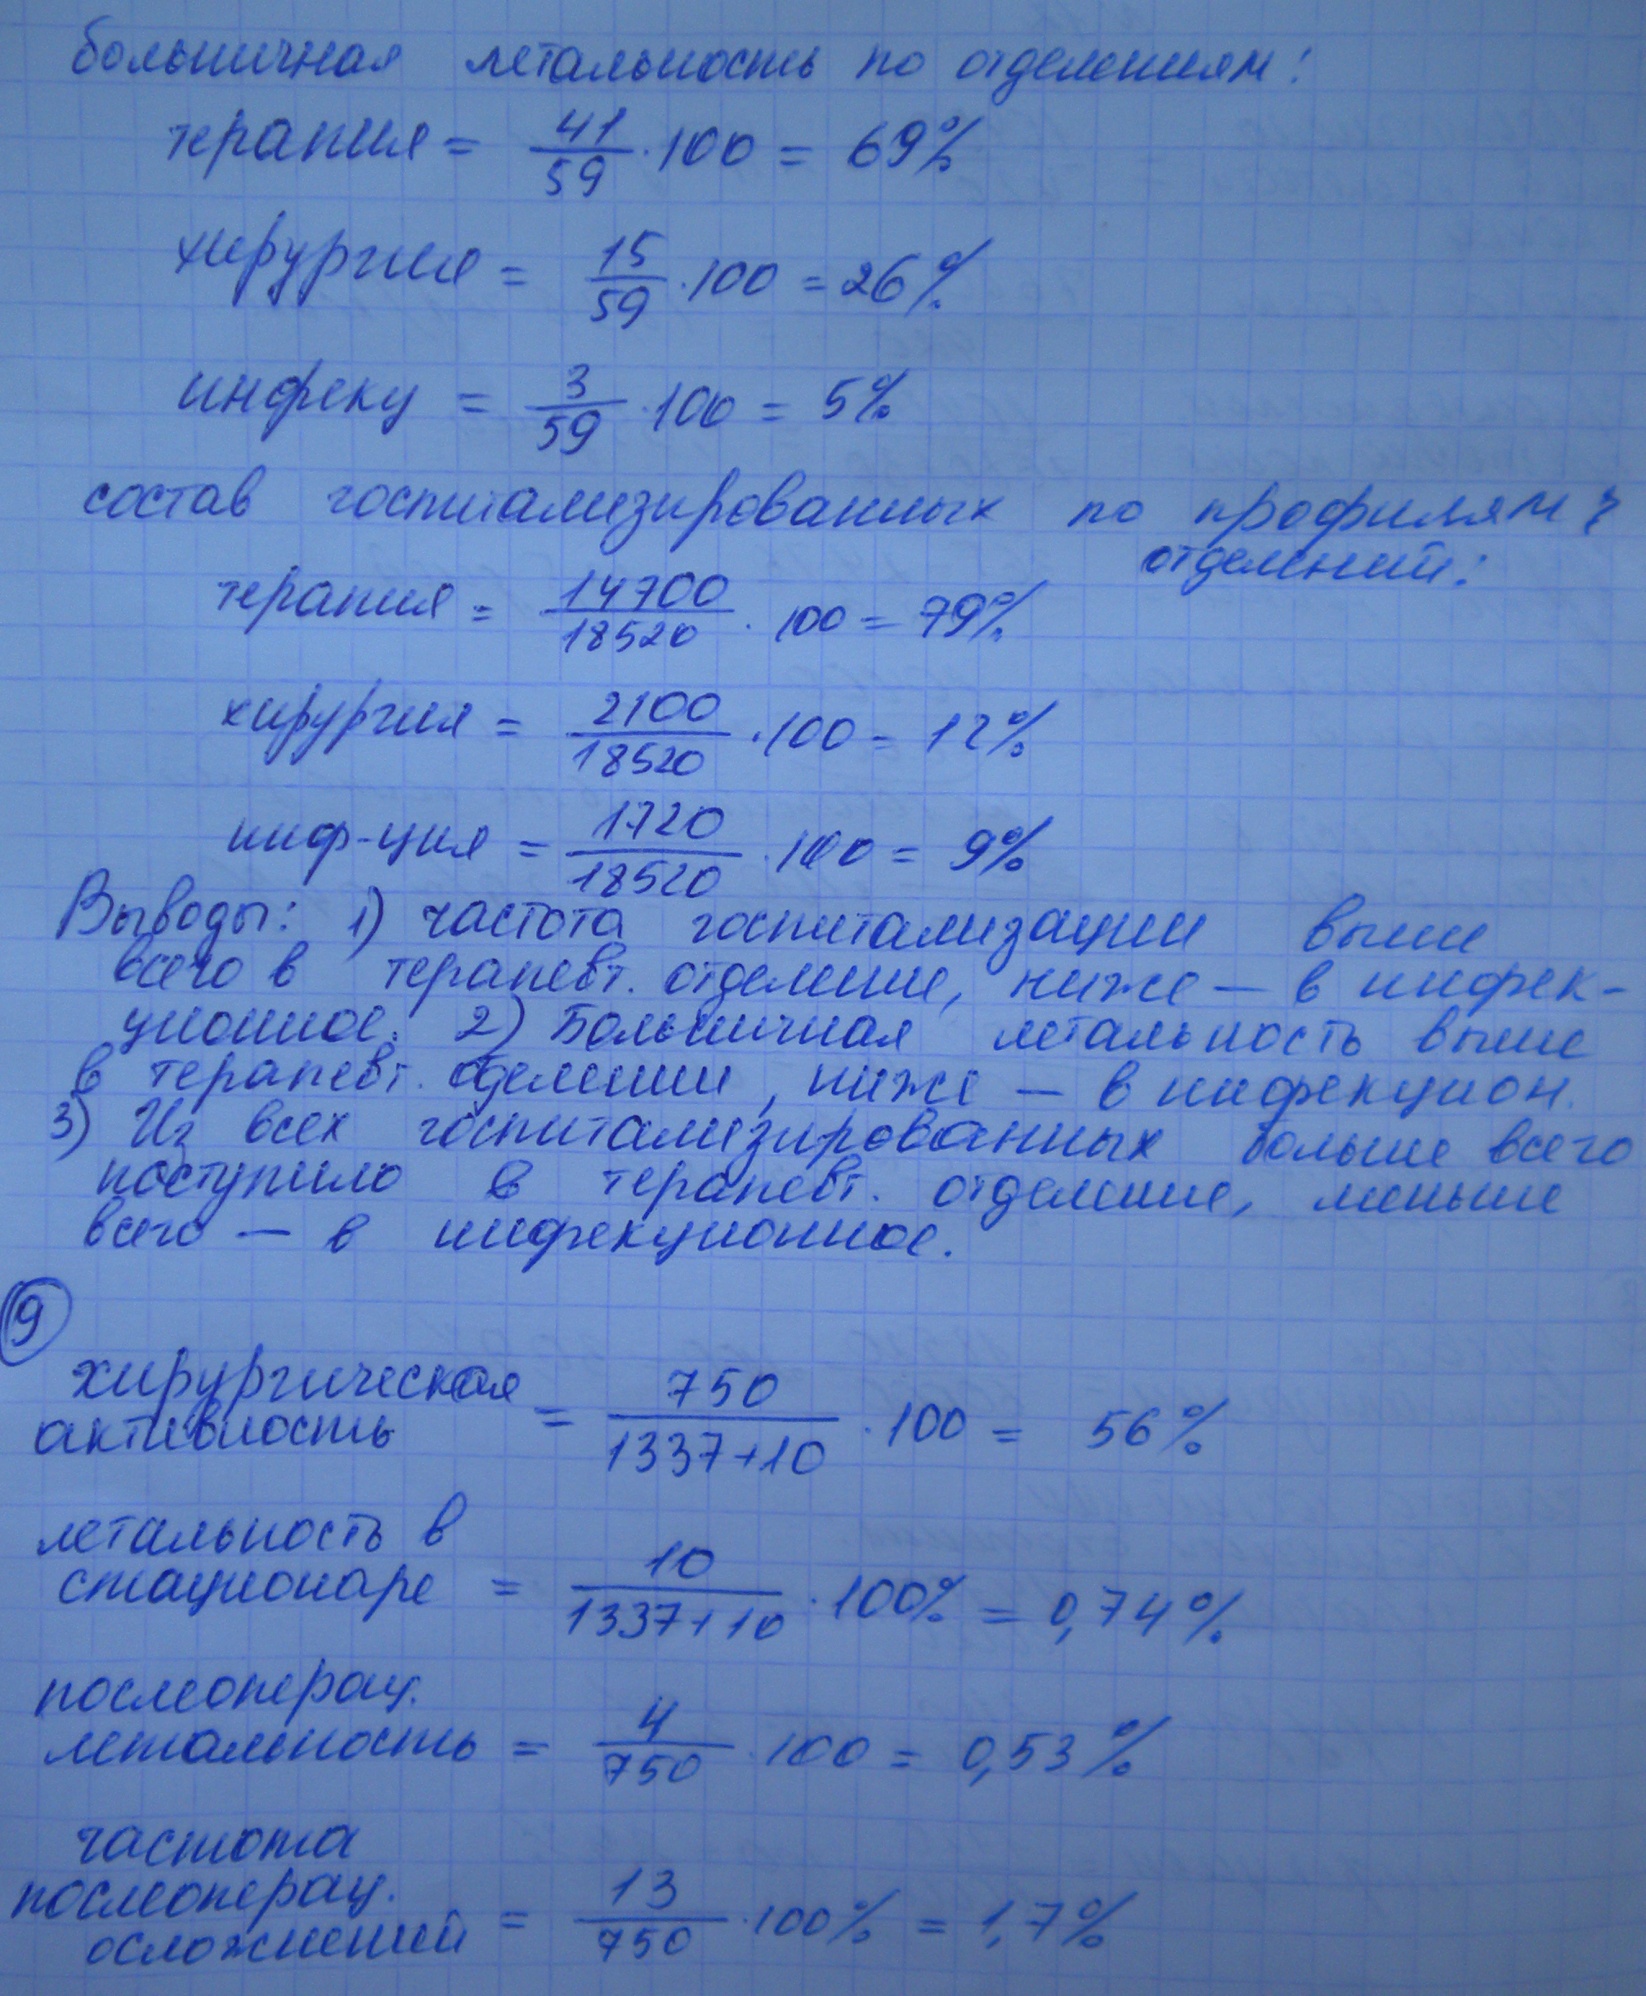 больничная летальность по отделениям:
терапия = 41/59 · 100 = 69%
хирургия = 15/59 · 100 = 26%
инфекц = 3/59 · 100 = 5%
состав госпитализированных по профилям
отделений:
терапия = 14700/18520 · 100 = 79%
хирургия = 2100/18520 · 100 = 12%
инф-ция = 1720/18520 · 100 = 9%
Выводы: 1) частота госпитализации выше
всего в терапевт. отделение, ниже — в инфек-
ционное. 2) Больничная летальность выше
в терапевт. отделении, ниже — в инфекцион.
3) Из всех госпитализированных больше всего
поступило в терапевт. отделение, меньше
всего — в инфекционное.
9
хирургическая
активность = 750/1337+10 · 100 = 56%
летальность в
стационаре = 10/1337+10 · 100% = 0,74%
послеоперац.
летальность = 4/750 · 100 = 0,53%
частота
послеоперац.
осложнений = 13/750 · 100% = 1,7%